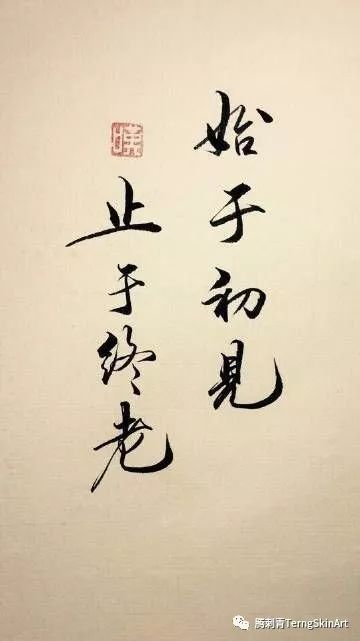 始于初見
止于终老
腾刺青TerngSkinArt